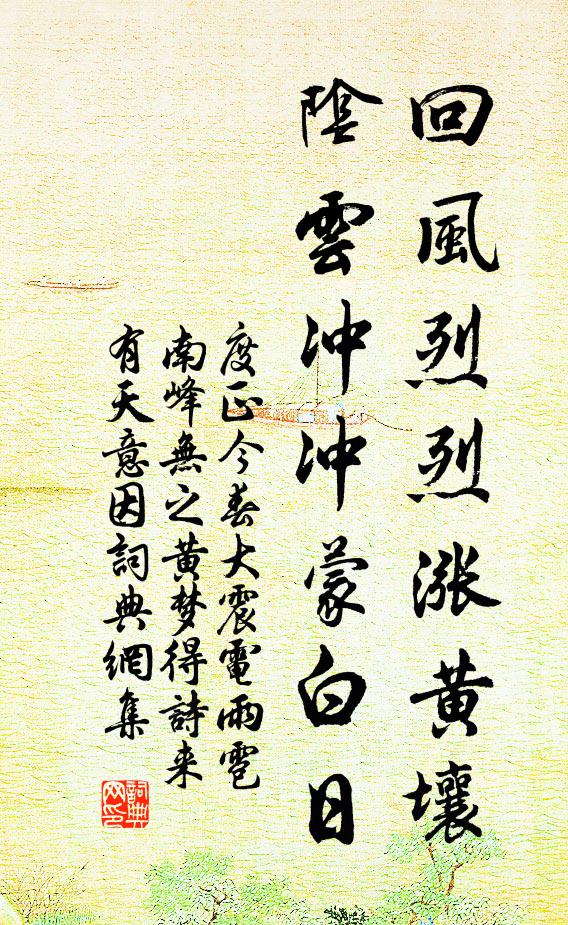 回風烈烈漲黃壤
陰雲冲冲蒙白日
度正今春大震電雨雹
南峰無之黃梦得詩来
有天意因詞典網集
詞典
网印